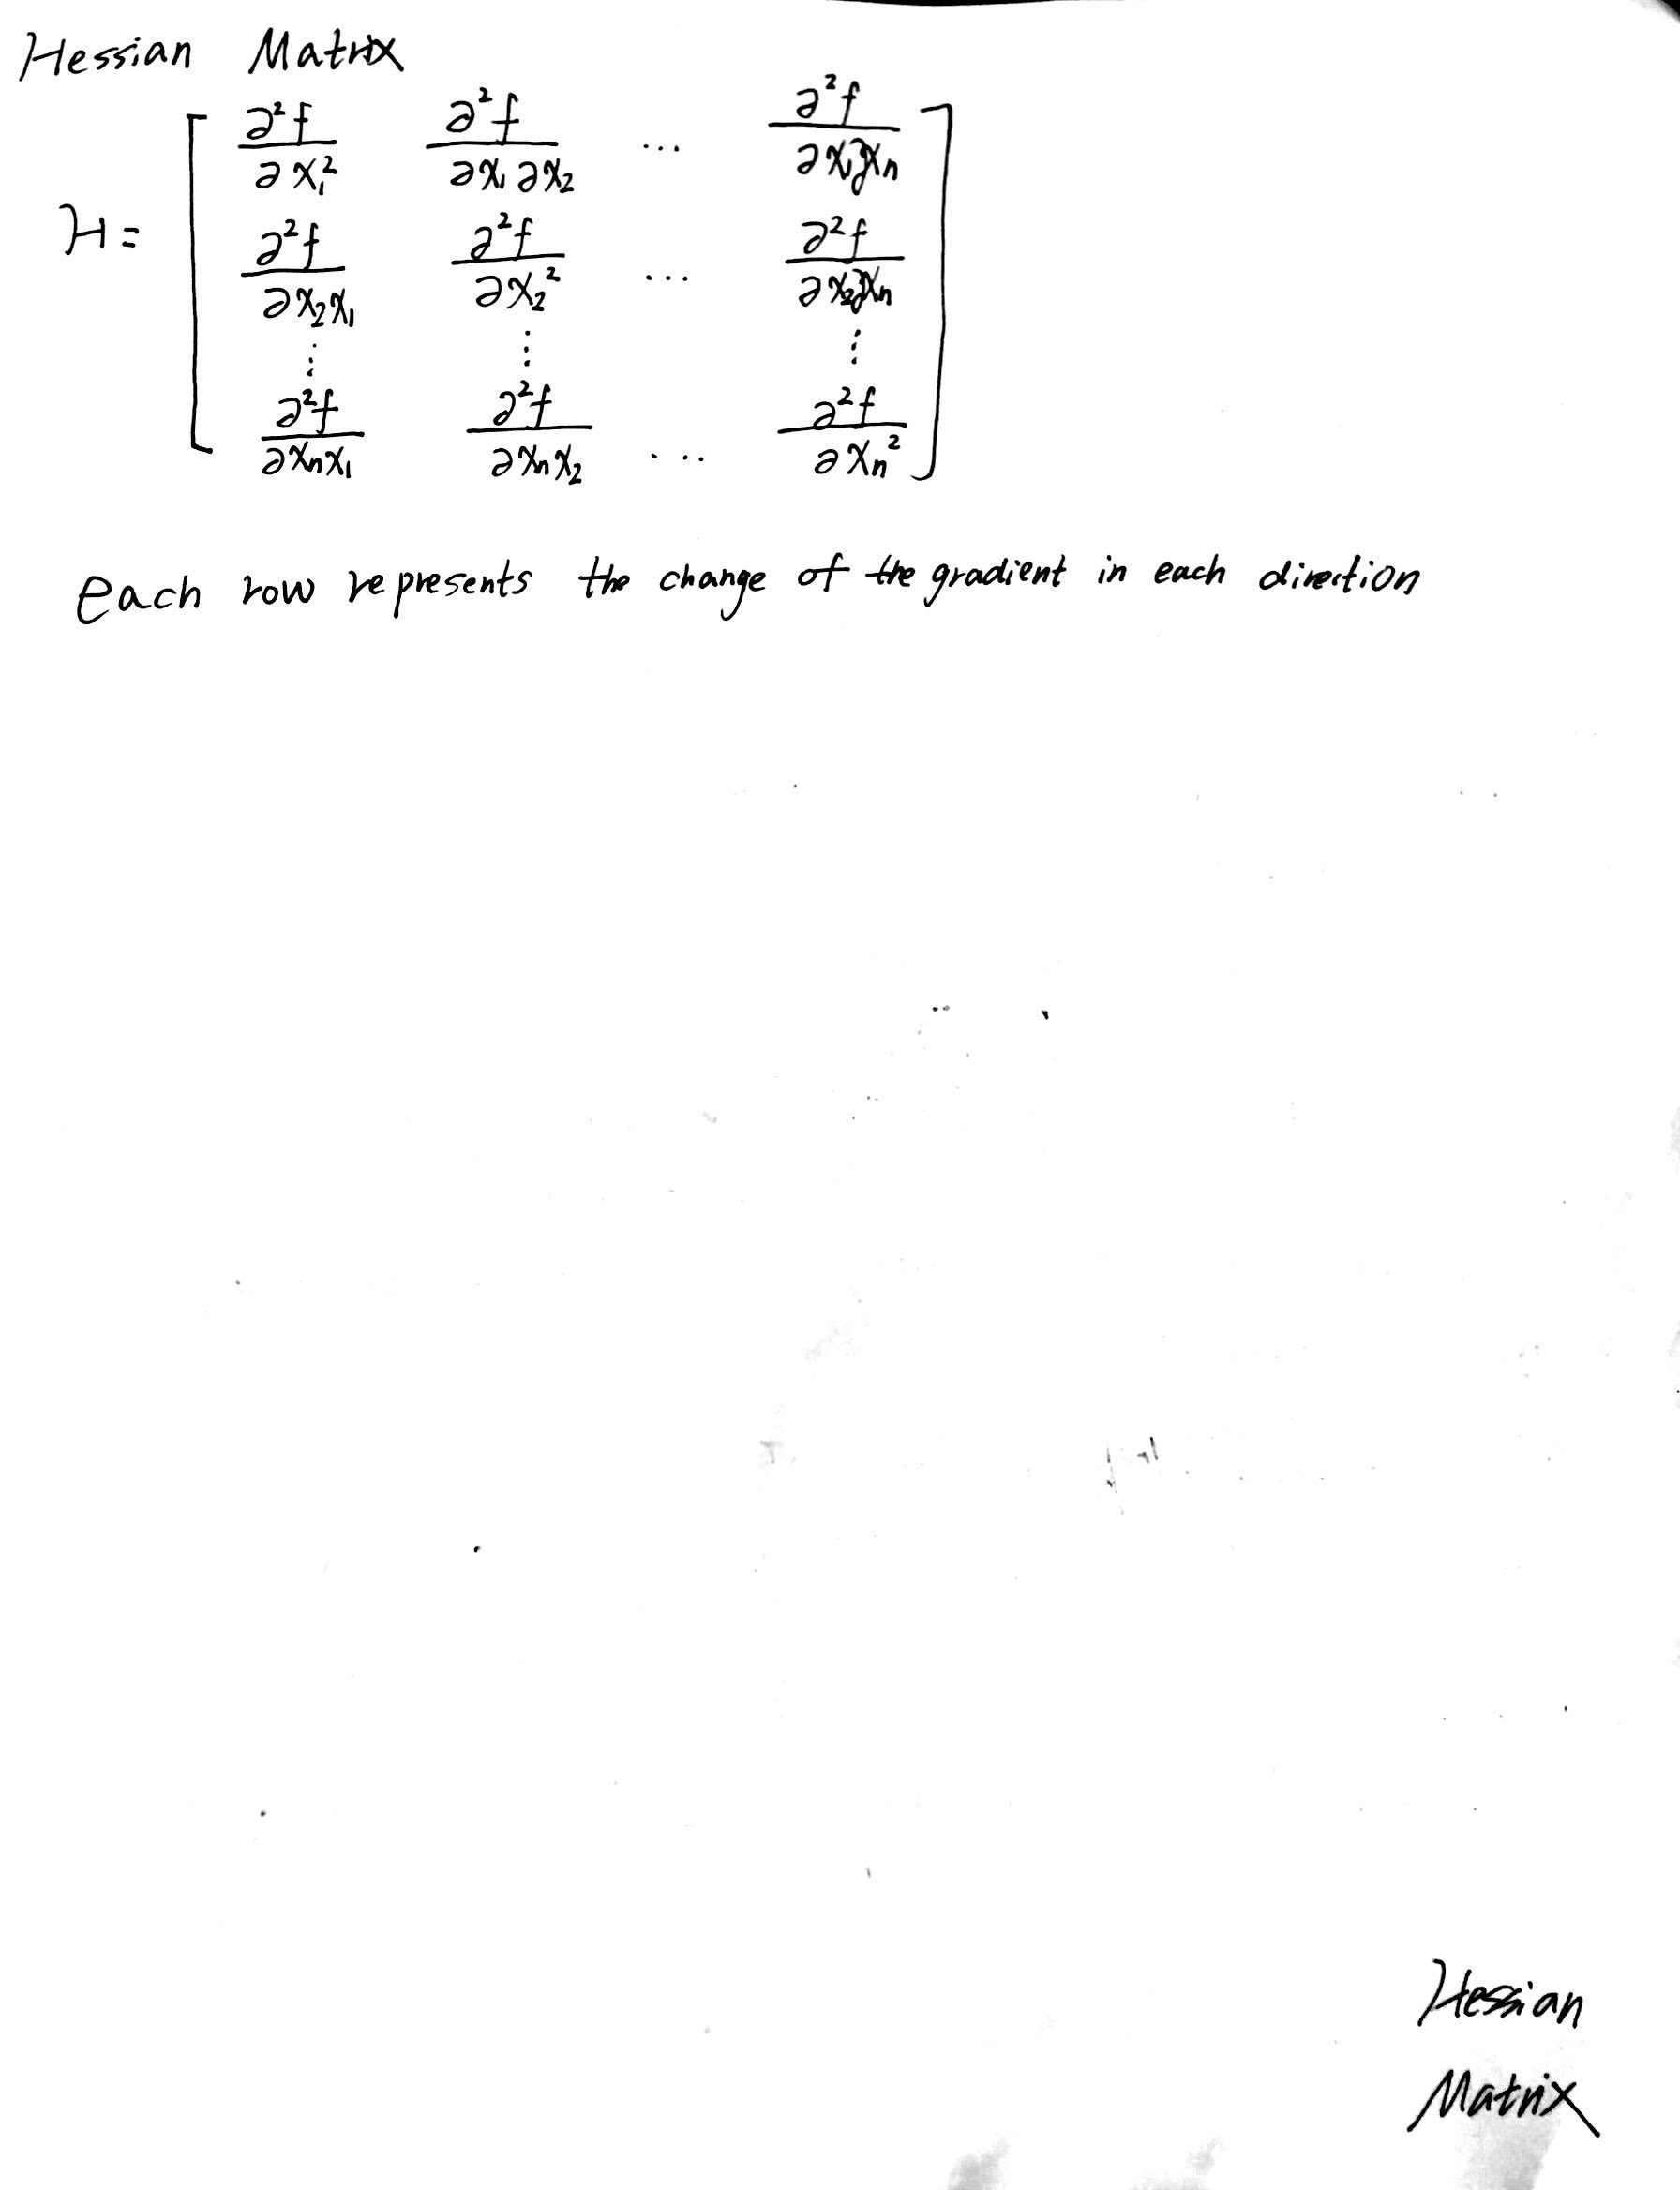 Hessian Matrix
H = [ ∂²f/∂x₁² ∂²f/∂x₁∂x₂ ... ∂²f/∂x₁∂xₙ
∂²f/∂x₂x₁ ∂²f/∂x₂² ... ∂²f/∂x₂∂xₙ
⋮ ⋮ ⋮
∂²f/∂xₙx₁ ∂²f/∂xₙx₂ ... ∂²f/∂xₙ² ]
each row represents the change of the gradient in each direction
Hessian
Matrix